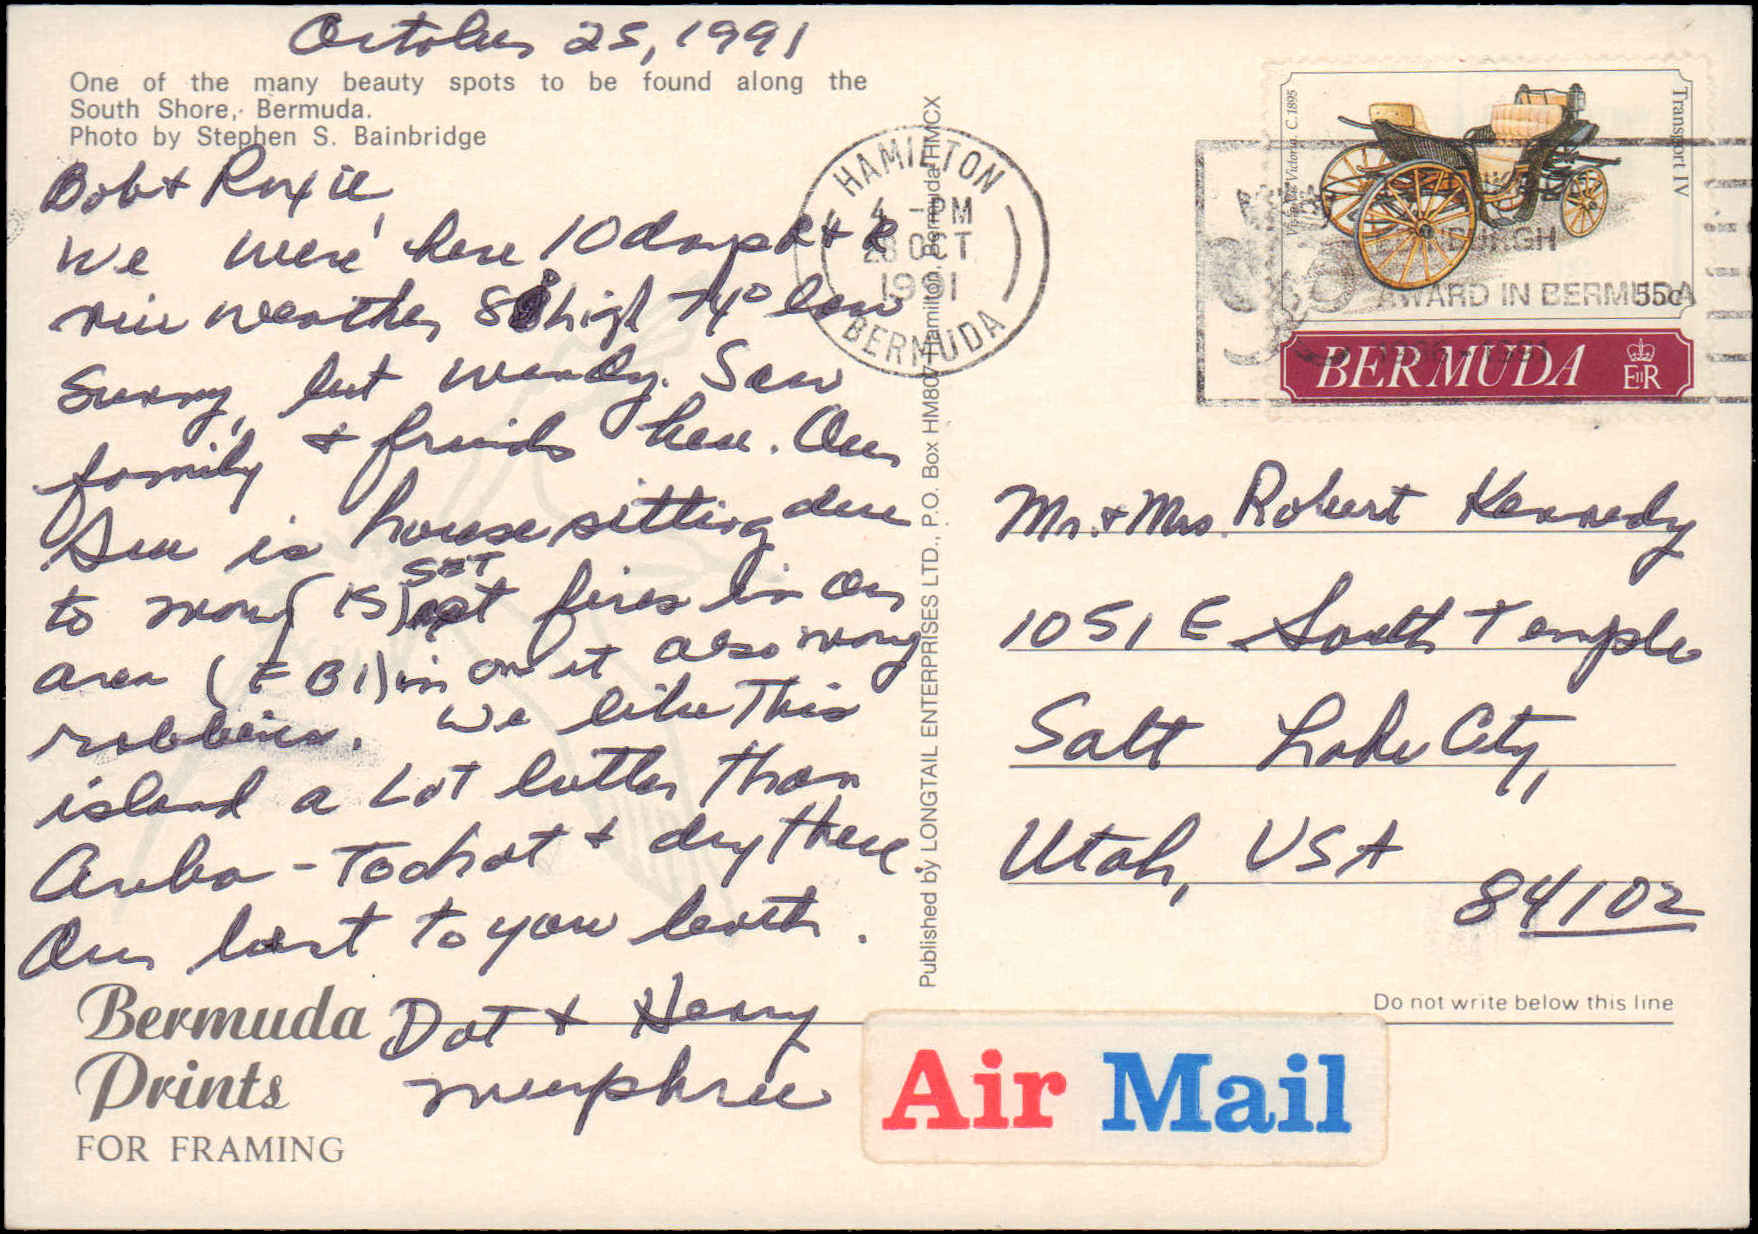 October 25, 1991
One of the many beauty spots to be found along the
South Shore, Bermuda.
Photo by Stephen S. Bainbridge
Bob & Roxie
We were here 10 days R & R
nice weather, 80 high 74° low
Sunny, but windy. Saw
family & friends here. Our
Sue is house sitting due
to many (15) SET fires in our
area (FBI) in on it also many
robberies. We like This
island a Lot better Than
Aruba - Too hot & dry there
Our best to you both.
Dot & Henry
Murphree
Bermuda
Prints
FOR FRAMING
Published by LONGTAIL ENTERPRISES LTD., P.O. Box HM807 Hamilton, Bermuda HMCX
HAMILTON
4 - PM
28 OCT
1991
BERMUDA
Transport IV
Victoria C.1895
EDINBURGH
AWARD IN BERMUDA
55c
1966 - 1991
BERMUDA
EIIR
Mr. & Mrs. Robert Kennedy
1051 E South Temple
Salt Lake City,
Utah, USA
84102
Do not write below this line
Air Mail